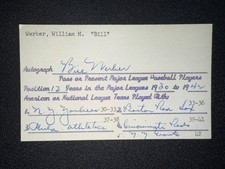 Werber, William M. "Bill"
Autograph Bill Werber
Past or Present Major League Baseball Players
Position 12 Years in the Major Leagues 1930 to 1942
American or National League Teams Played With:
1 N.Y. Yankees 30-33 2 Boston Red Sox 33-36
3 Phila. Athletics 37-38 4 Cincinnati Reds 39-41
N.Y. Giants 42